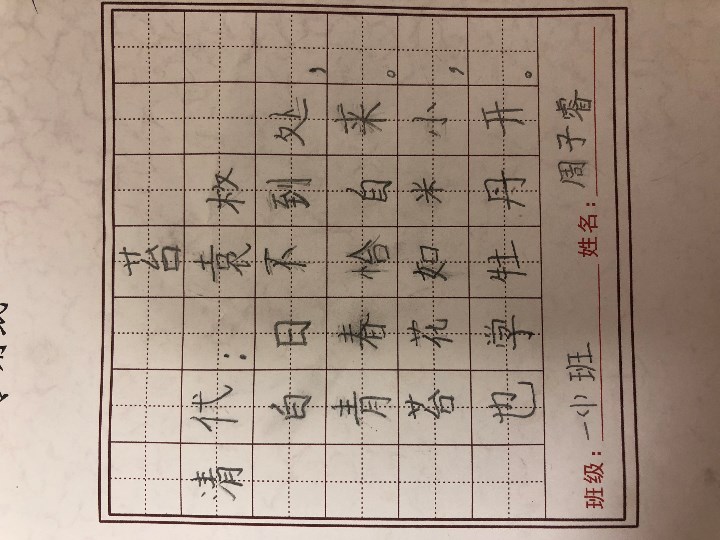 苔
清代：袁枚
白日不到处，
青春恰自来。
苔花如米小，
也学牡丹开。
班级：一(1)班 姓名：周子睿